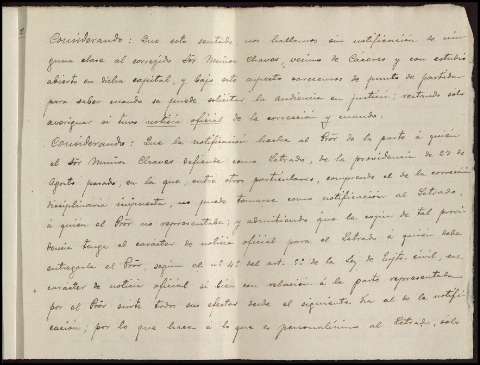 Considerando: Que esto sentado nos hallamos sin notificación de nin-
guna clase al corregido Sor Muñoz Chaves, vecino de Cáceres y con estudio
abierto en dicha capital, y bajo este aspecto carecemos de punto de partida
para saber cuando se puede solicitar la audiencia en justicia; restando solo
averiguar si tuvo noticia oficial de la corrección y cuando.
Considerando: Que la notificación hecha al Pror de la parte á quien
el Sor Muñoz Chaves defiende como Letrado, de la providencia de 27 de
Agosto pasado, en la que, entre otros particulares, comprende el de la corrección
disciplinaria impuesta, no puede tomarse como notificación al Letrado,
á quien el Pror no representaba; y admitiendo que la copia de tal provi-
dencia tenga el carácter de noticia oficial para el Letrado á quien debe
entregarla el Pror, según el nº 4º del art. 5º de la Ley de Enjto civil, ese
carácter de noticia oficial si bien con relación á la parte representada
por el Pror surte todos sus efectos desde el siguiente día al de la notifi-
cación; por lo que hace á lo que es personalísimo al Letrado, solo